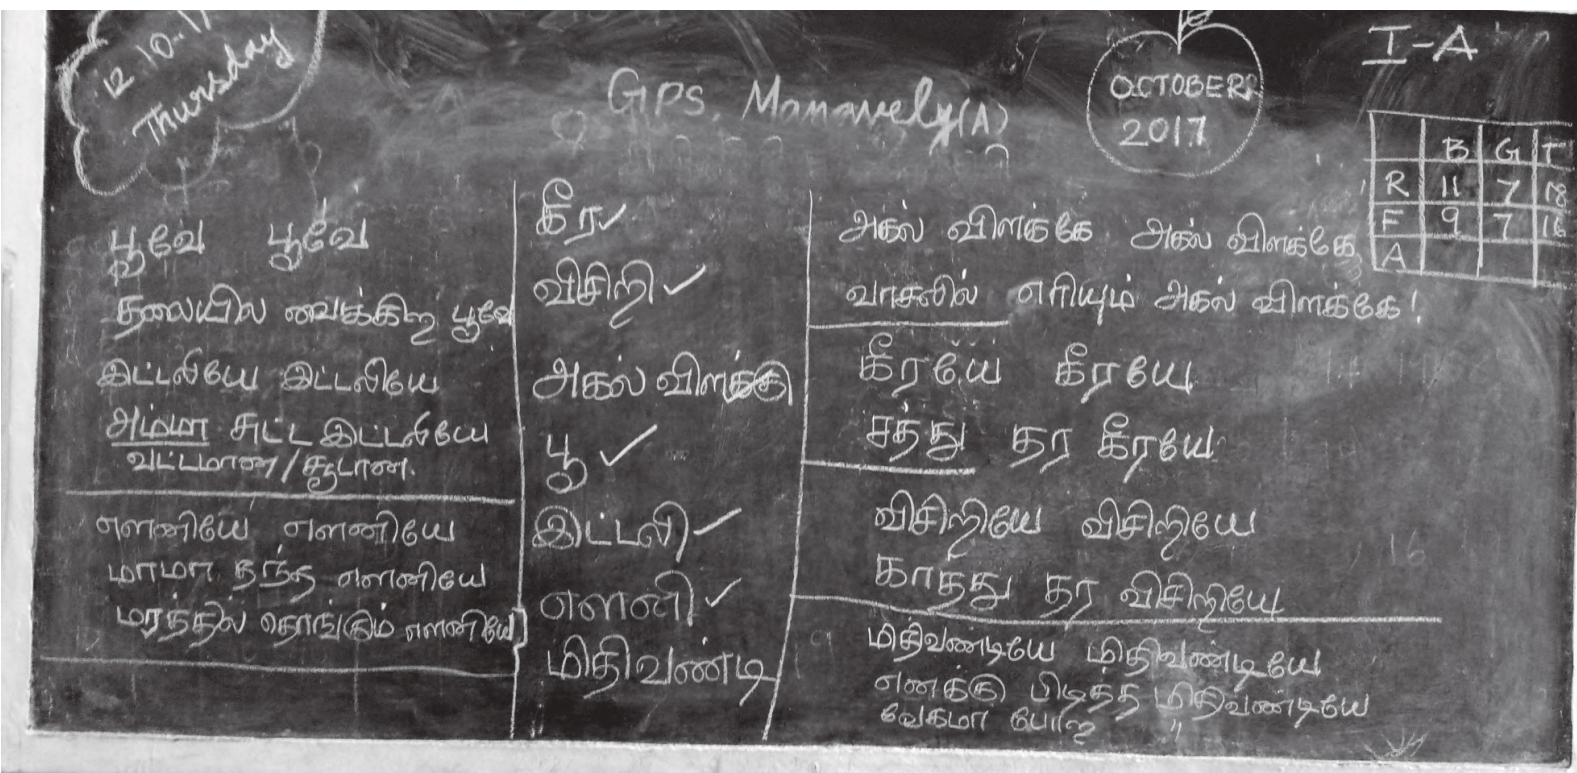 12.10.17
Thursday
GPS, Manavely(A)
OCTOBER
2017
I-A
B G T
R 11 7 18
F 9 7 16
A
பூவே பூவே
தலையில வைக்கிற பூவே
இட்டலியே இட்டலியே
அம்மா சுட்ட இட்டலியே
வட்டமான/சூடான.
எளனியே எளனியே
மாமா தந்த எளனியே
மரத்தில தொங்கும் எளனியே
கீர✓
விசிறி ✓
அகல் விளக்கு
பூ ✓
இட்டலி ✓
எளனி ✓
மிதிவண்டி
அகல் விளக்கே அகல் விளக்கே
வாசலில் எரியும் அகல் விளக்கே!
கீரயே கீரயே
சத்து தர கீரயே
விசிறியே விசிறியே
காத்து தர விசிறியே
மிதிவண்டியே மிதிவண்டியே
எனக்கு பிடித்த மிதிவண்டியே
வேகமா போற "
16